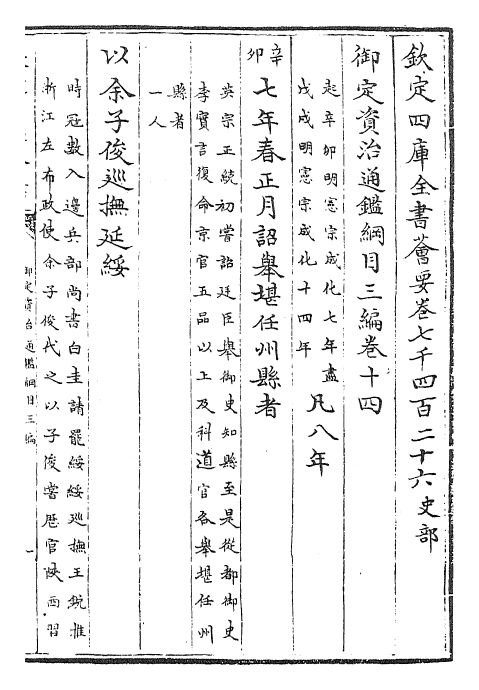 欽定四庫全書薈要卷七千四百二十六史部
御定資治通鑑綱目三編卷十四
起辛卯明憲宗成化七年盡
戊戌明憲宗成化十四年
凡八年
辛卯
七年春正月詔舉堪任州縣者
英宗正統初嘗詔廷臣舉御史知縣至是從都御史
李賓言復命京官五品以上及科道官各舉堪任州
縣者
一人
以余子俊巡撫延綏
時冦數入邊兵部尚書白圭請罷綏綏巡撫王銳推
浙江左布政使余子俊代之以子俊嘗厯官陝西習
御定資治通鑑綱目三編
一